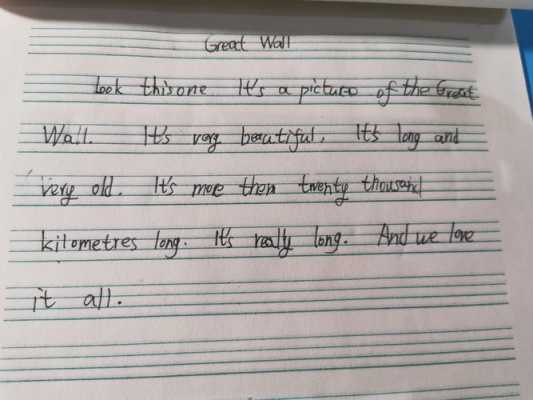 Great Wall
Look this one. It's a picture of the Great
Wall. It's very beautiful. It's long and
very old. It's more then twenty thousand
kilometres long. It's really long. And we love
it all.